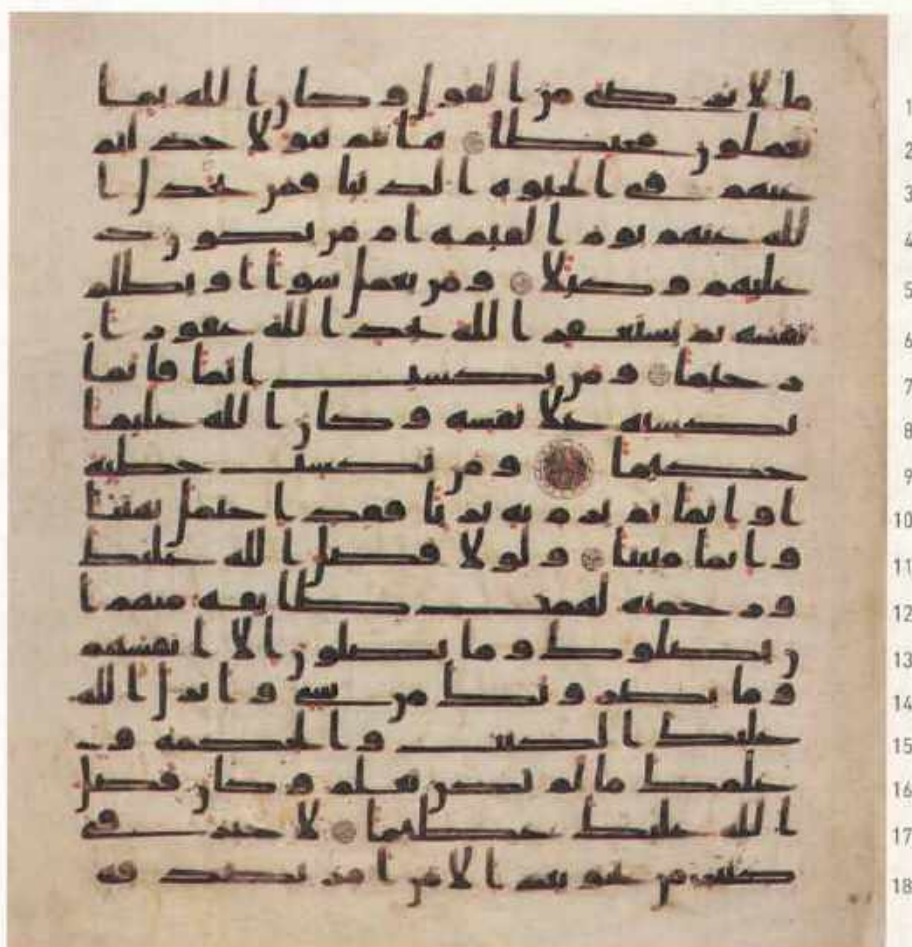 ما لا يرضى من القول وكان الله بما 1
يعملون محيطا هانتم هولا جدلتم 2
عنهم في الحيوة الدنيا فمن يجدل ا 3
لله عنهم يوم القيمة ام من يكون 4
عليهم وكيلا ومن يعمل سوا او يظلم 5
نفسه ثم يستغفر الله يجد الله غفورا 6
رحيما ومن يكسب اثما فانما 7
يكسبه على نفسه وكان الله عليما 8
حكيما ومن يكسب خطيه 9
او اثما ثم يرم به بريا فقد احتمل بهتنا 10
واثما مبينا ولولا فضل الله عليك 11
ورحمته لهمت طائفه منهم ا 12
ن يضلوك وما يضلون الا انفسهم 13
وما يضرونك من شي وانزل الله 14
عليك الكتب والحكمه و 15
علمك ما لم تكن تعلم وكان فضل 16
الله عليك عظيما لا خير في 17
كثير من نجويهم الا من امر بصدقه 18